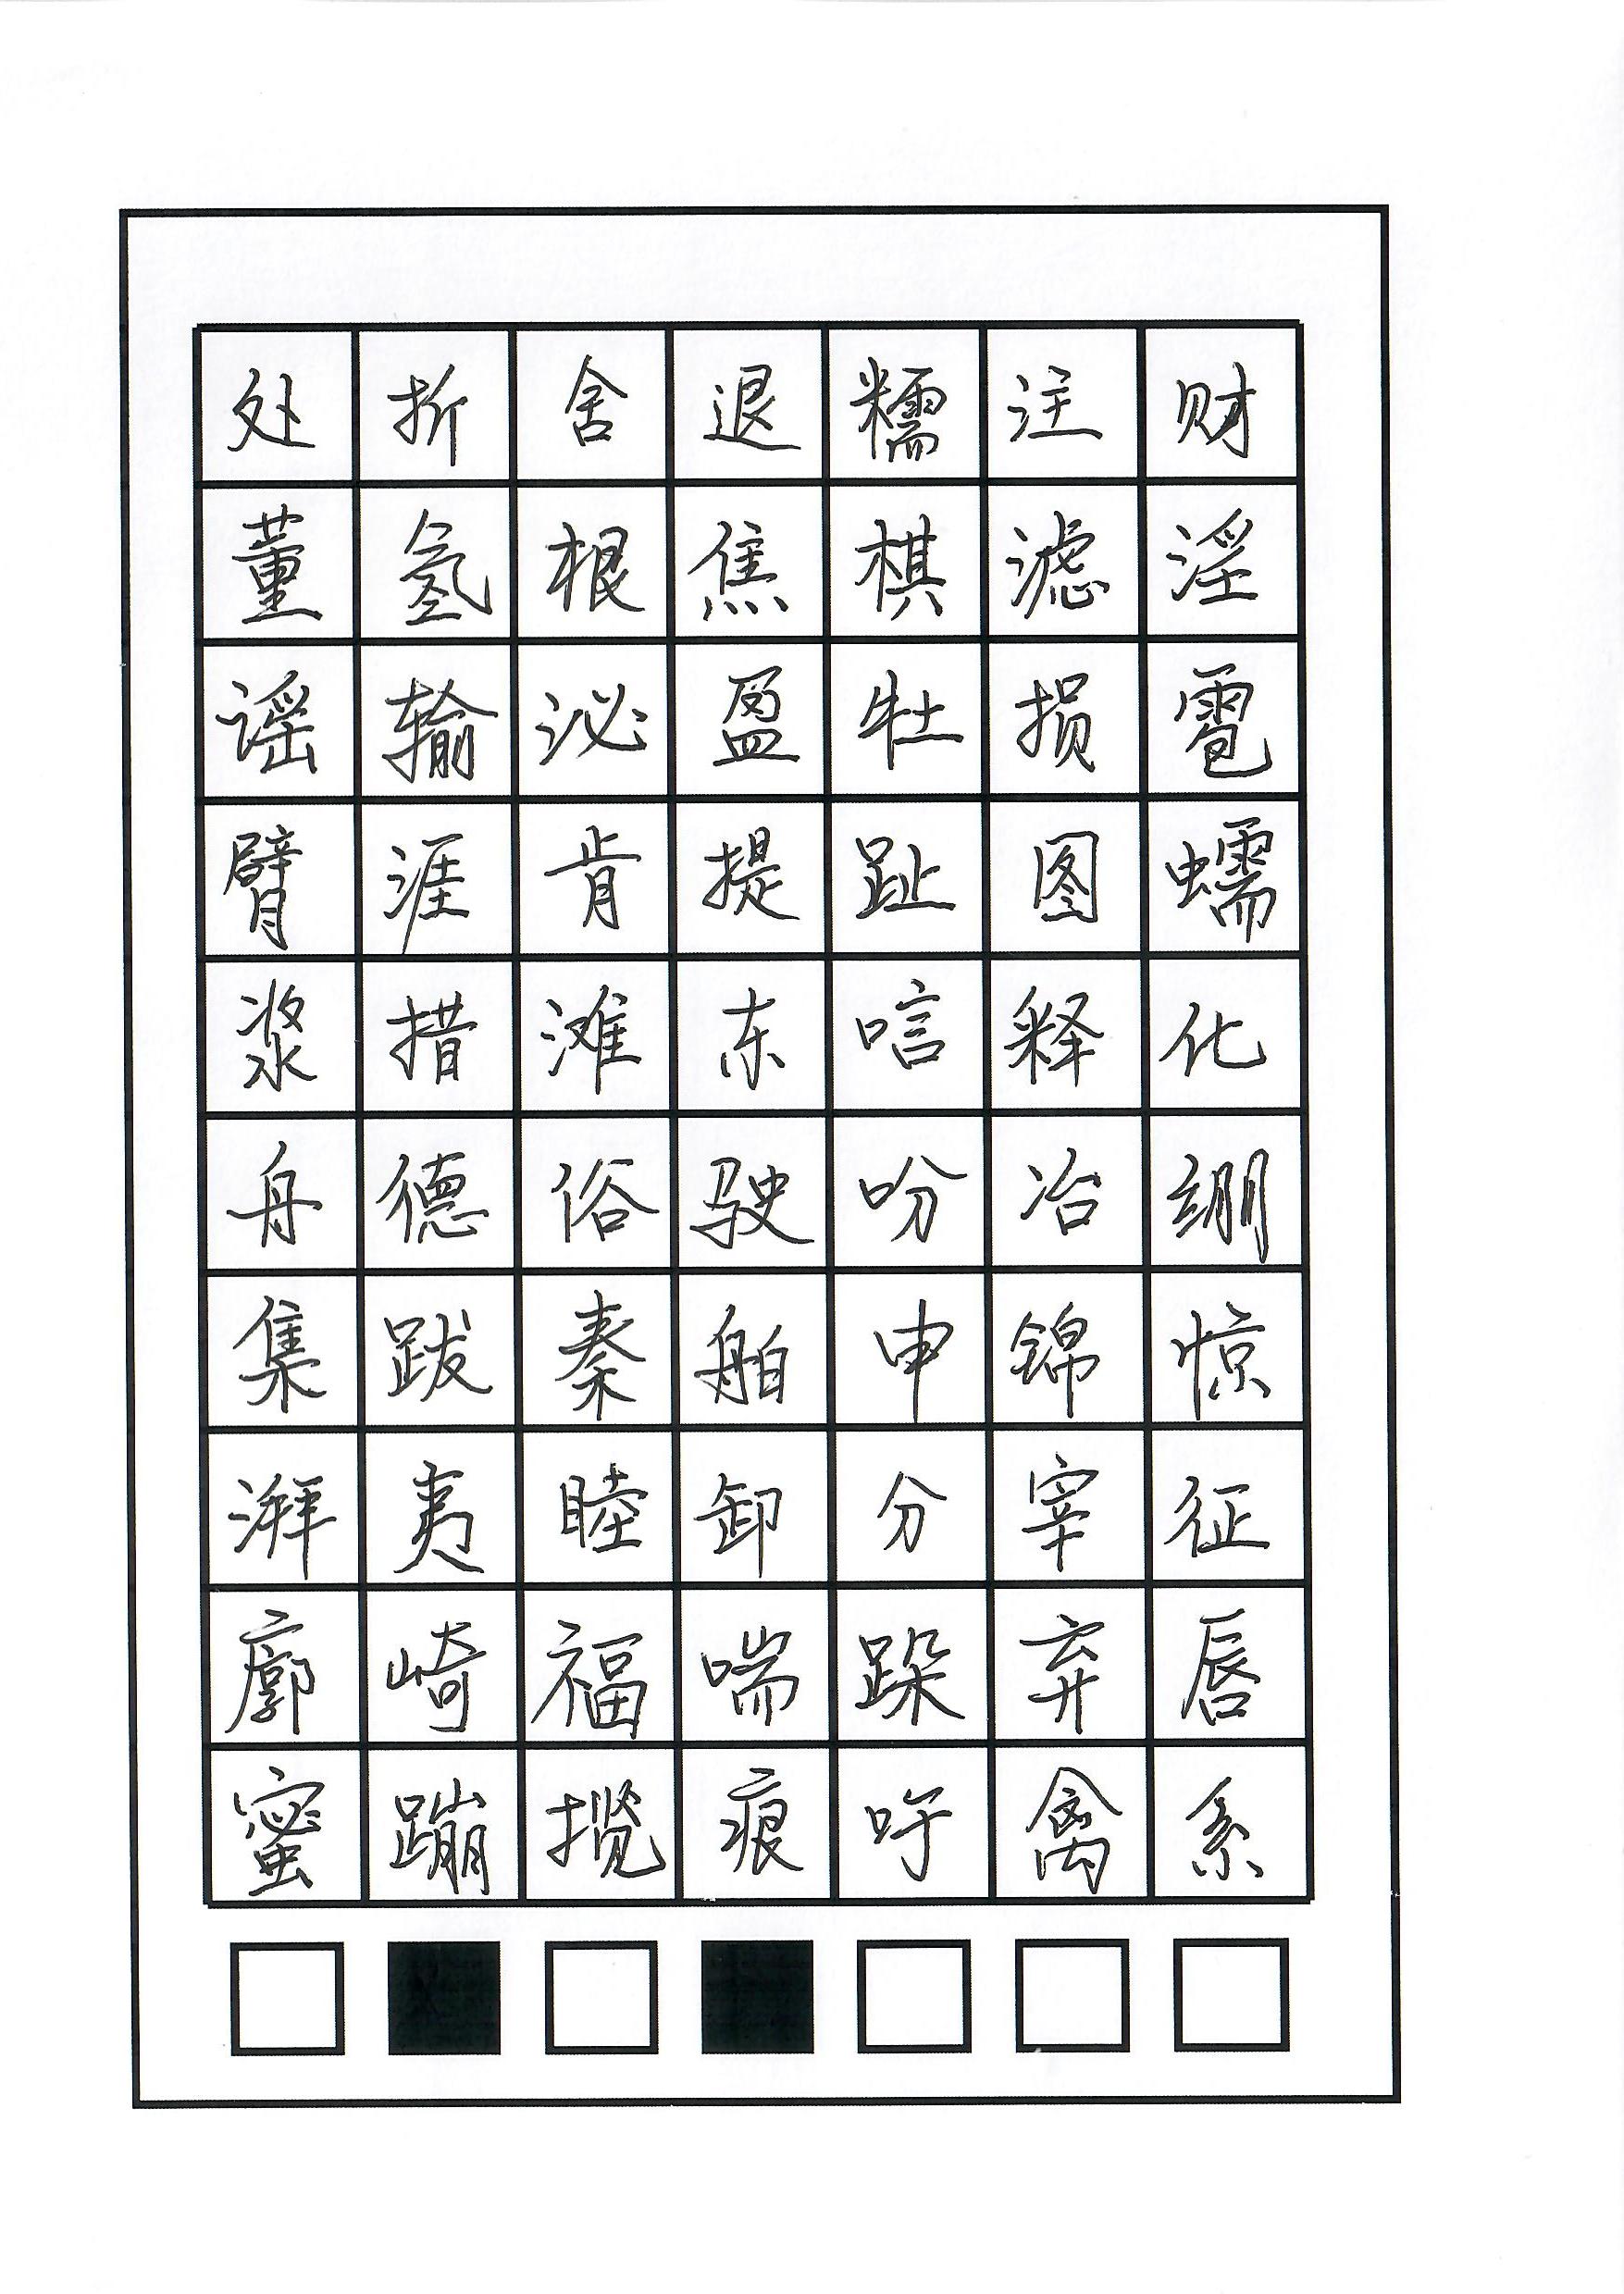 处折舍退糯注财
董氢根焦棋滤淫
谣输泌盈牡损雹
臂涯肯提趾图蠕
浆措滩东唁释化
舟德俗驶吩冶绷
集跋秦舶申锦惊
湃夷睦卸分宰征
廓崎福喘跺弃唇
蜜蹦揽痕吁禽系